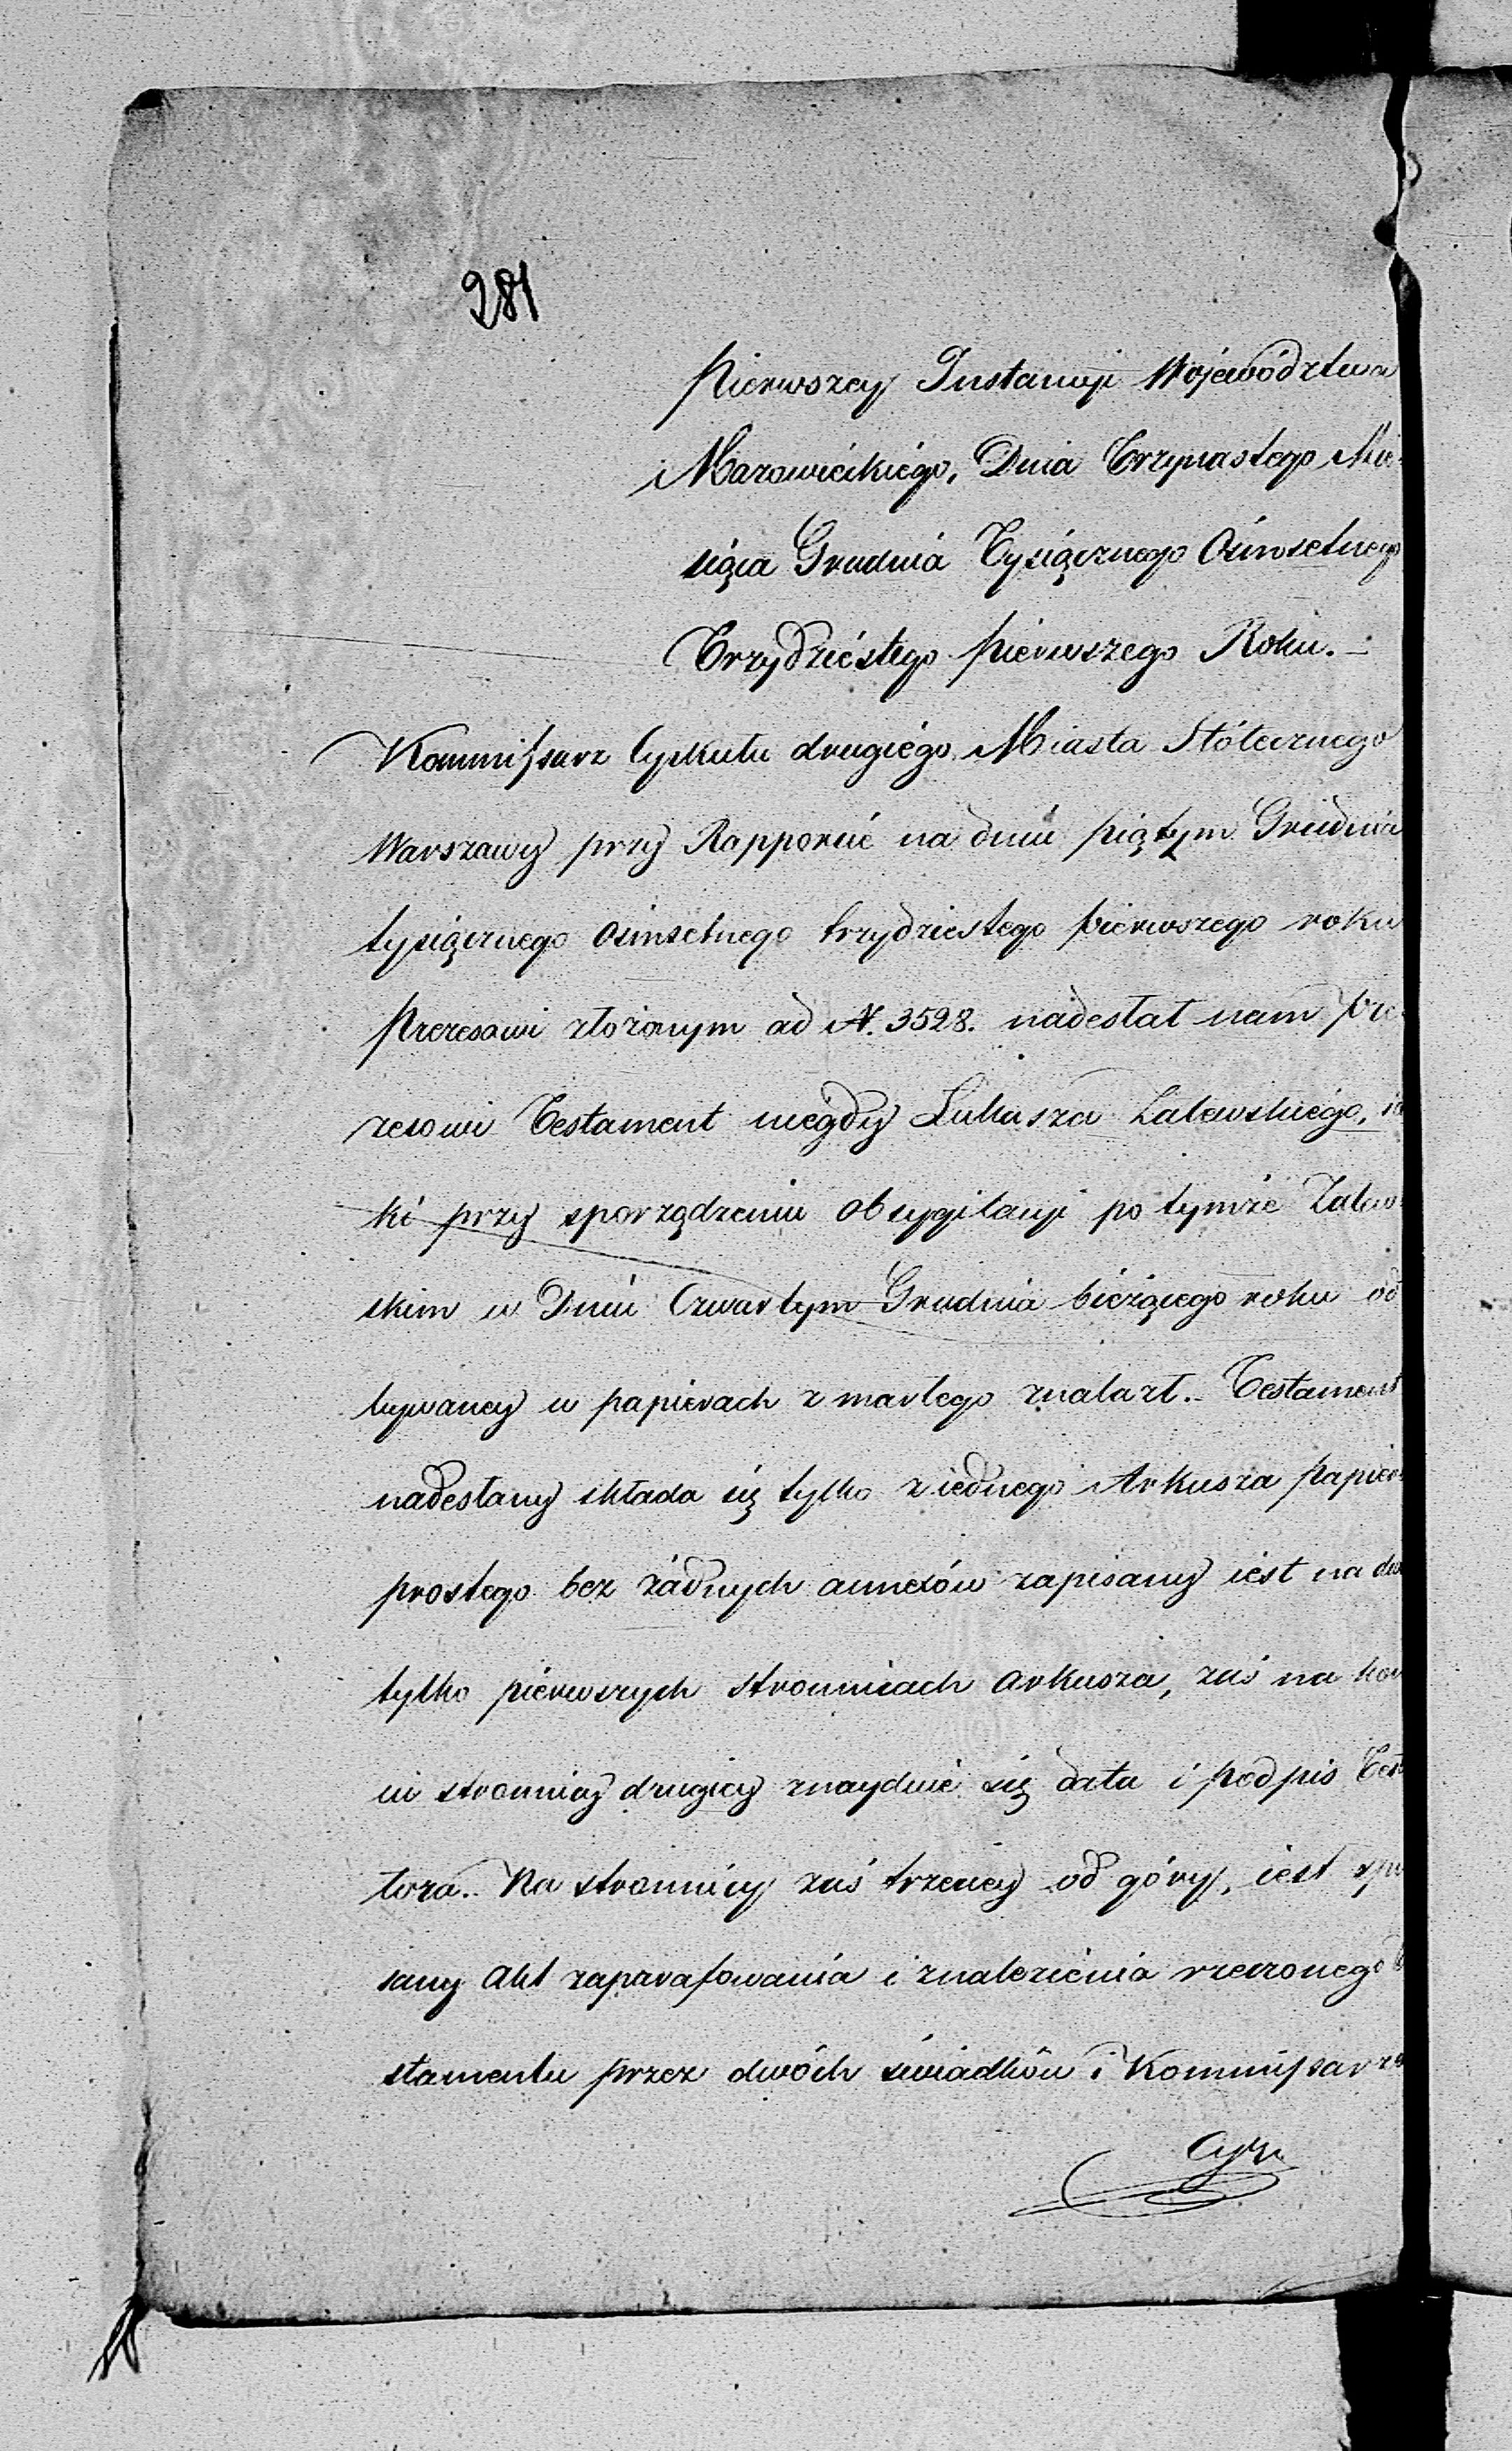 281
pierwszey Instancyi Województwa
Mazowieckiego, Dnia Trzynastego Mie-
siąca Grudnia Tysiącznego Ośmsetnego
Trzydziestego pierwszego Roku.-
Kommissarz Cyrkułu drugiego Miasta Stółecznego
Warszawy przy Rapporcie na dniu piątym Grudnia
tysiącznego ośmsetnego trzydziestego pierwszego roku
Prezesowi złożonym ad N. 3528. nadesłał nam pre-
zesowi Testament niegdy Łukasza Zalewskiego, ia
ki przy sporządzeniu obsygilacyi po tymże Zalew-
skim w Dniu Czwartym Grudnia bieżącego roku od
bywaney w papierach zmarłego znalazł.- Testament
nadesłany składa się tylko z iednego Arkusza papier
prostego bez żadnych annexów zapisany iest na
tylko pierwszych stronnicach arkusza, zaś na koń
cu stronnicy drugiey znayduie się data i podpis Test
tora.- Na stronnicy zaś trzeciey od góry, iest spi
sany akt zaparafowania i znalezienia rzeczonego
stamentu przez dwóch świadków i Kommissarza
Cyr.